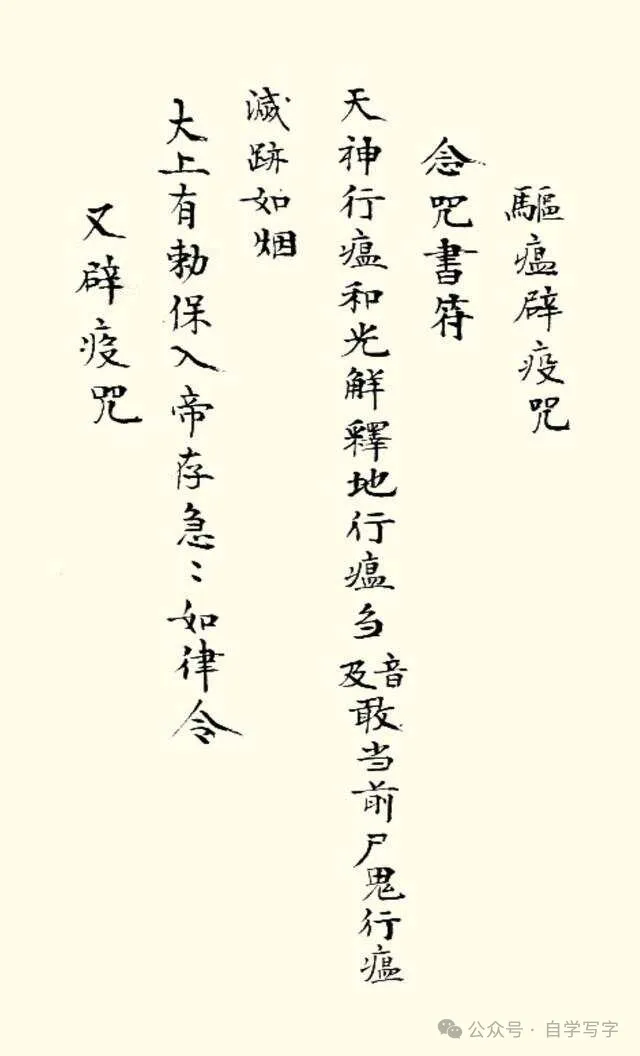 驅瘟辟疫咒
念咒書符
天神行瘟和光解釋地行瘟刍及音敢当前尸鬼行瘟
滅跡如烟
大上有勅保入帝存急〻如律令
又辟疫咒
公众号·自学写字